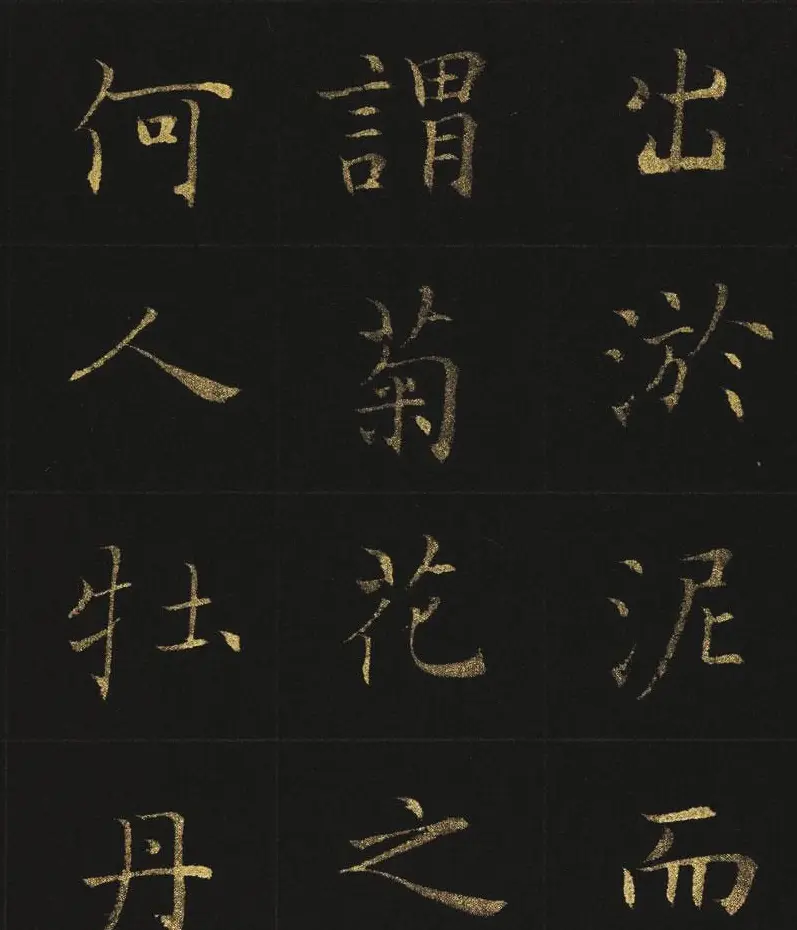 出淤泥而
謂菊花之
何人牡丹